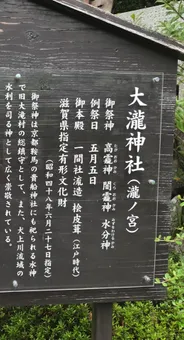 大瀧神社（瀧ノ宮）
御祭神　高龗神　闇龗神　水分神
例祭日　五月五日
御本殿　一間社流造　桧皮葺（江戸時代）
滋賀県指定有形文化財
（昭和四十八年六月二十七日指定）
御祭神は京都鞍馬の貴船神社にも祀られる水神
で旧大滝村の総鎮守として、また、犬上川流域の
水利を司る神として広く崇敬されている。